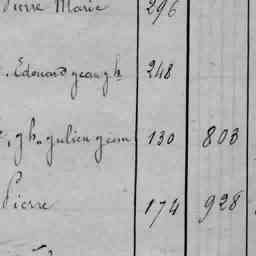 Pierre Marie 296
Edouard jean gh 248
gh. julien jean 130 803
Pierre 174 928